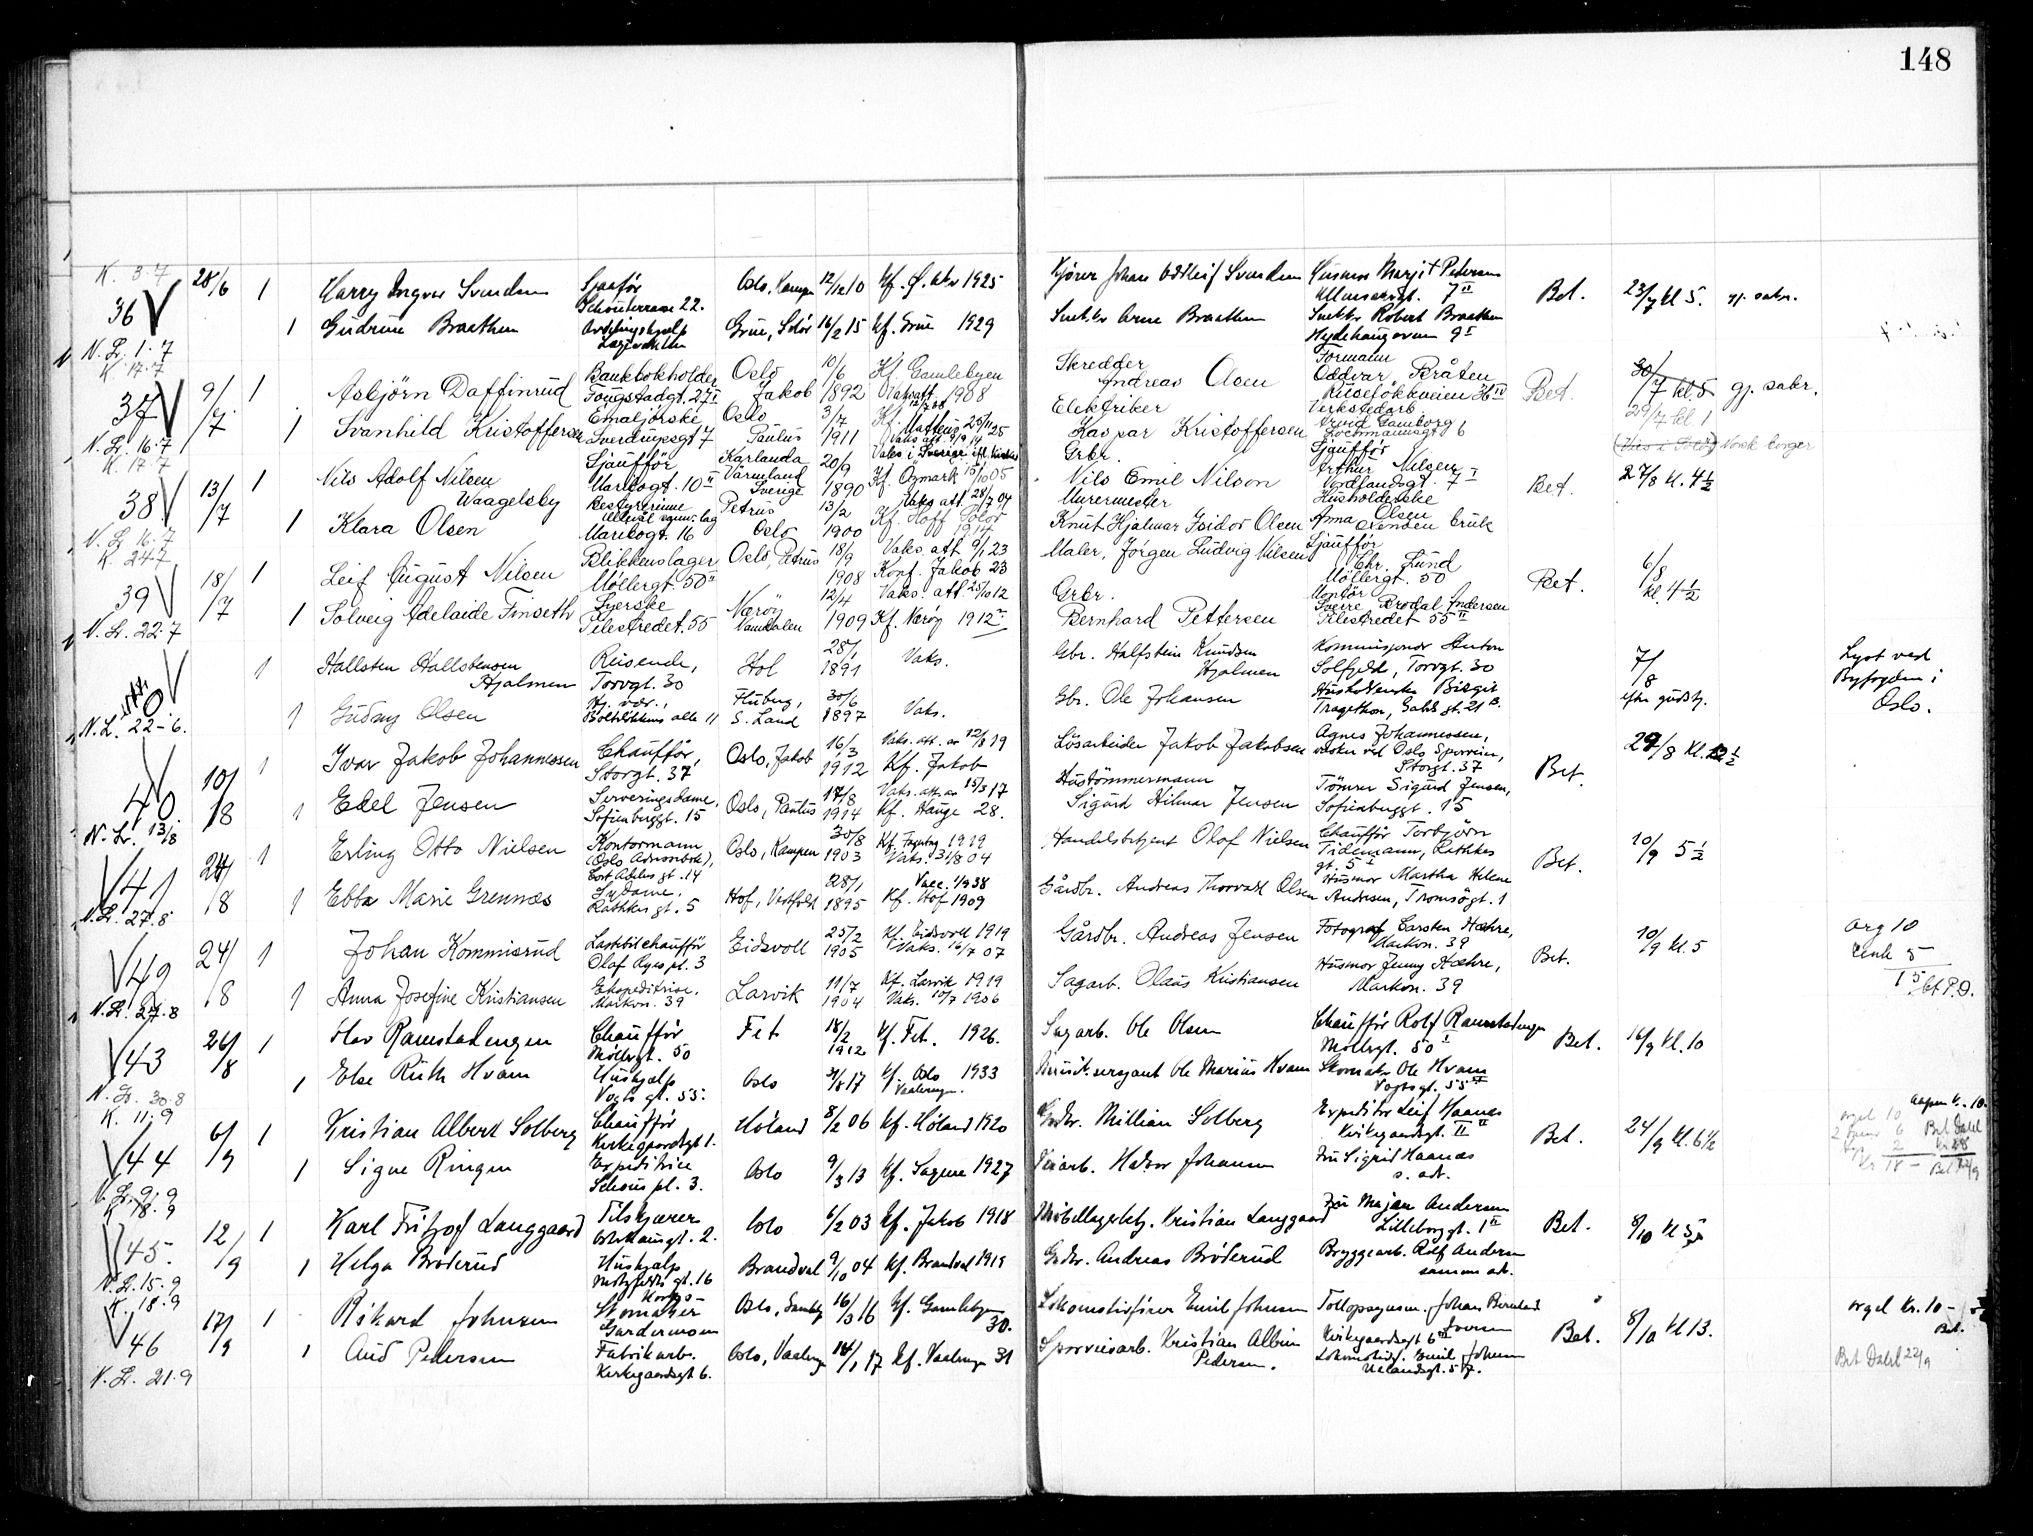 148
K. 3.7
36 28/6 1 Harry Ingvar Svendsen Sjaafør Oslo, Kampen 12/12 10 Kf. 1925 Kjører Johan Oddleif Svendsen Husmor Marjit Pedersen Bet. 23/7 kl 5. gj. sakr.
Schouterrasse 22. 7 II
1 Gudrun Braathen Grue, Solør 16/2 15 Kf. Grue 1929 Snekker Arne Braathen Snekker Robert Braathen
N. Lr. 1.7 Hydehaugveien 9 I
K. 17.7
37 9/7 1 Asbjörn Daffinrud Bankbokholder Oslo 10/6 Kf Gamlebyen Skredder Formann Bet. 30/7 kl. 5 gj. sakr.
Fougstadgt. 27 I Jakob 1892 1908 Andreas Olsen Oddvar Bråten
Ruseløkkveien 36 IV
1 Svanhild Kristoffersen Emaljørske Oslo 3/7 Kf. Matteus 25/11 25 Elektriker Verkstedarb. 29/7 kl. 1
Sverdrupsgt 7 Paulus 1911 Kaspar Kristoffersen 6
N. Lr. 16.7 Norsk borger
K. 17.7
38 13/7 1 Nils Adolf Nilsen Sjauffør Karlanda 20/9 Vaks i Sverige Grbr. Sjauffør Bet. 27/8 kl. 4½
Waagelsby Maribogt. 10 II Värmland Sverige 1890 Kf. Ögmark 15/10 05 Nils Emil Nilson Arthur Nilsen
Nordlandsgt. 7 I
1 Klara Olsen Bestyrerinne Petrus 13/2 Vaks att. 28/7 04 Murermester Husholderske
Maribogt. 16 Oslo 1900 Kf. Hoff Solör 1914 Knut Hjalmar Isidor Olsen Anna Olsen
N. Lr 16.7
K. 24.7
39 18/7 1 Leif August Nilsen Blikkenslager Oslo, Petrus 18/9 Vaks. att 9/1 23 Maler, Jörgen Ludvig Nilsen Sjauffør Bet. 6/8
Möllergt. 50 II 1908 Konf. Jakob 23 Chr. Lund kl. 4½
Möllergt. 50
1 Solveig Adelaide Finseth Syerske Nærøy 12/4 Vaks. att. 25/10 12 Grbr. Montør
Pilestredet. 55 Namdalen 1909 Kf. Nærøy 1912 Bernhard Pettersen Sverre Brodal Andersen
N. Lr. 22.7 Pilestredet 55 II
0 1 Hallsten Hallstensen Reisende, Hol 28/1 Vaks. Gbr. Halfstein Knudsen Kommisjonær Anton 7/8 Lyst ved
Hjalmen Torvgt. 30 1891 Hjalmen Solfjeld, Torvgt. 30 Byfogden i
1 Gudny Olsen Fluberg, 30/6 Vaks. Gbr. Ole Johansen Husholderske Birgit efter gudstj. Oslo.
N.L. 22-6. alle 11 S. Land 1897 Tragethon, gt. 21 B.
40 10/8 1 Ivar Jakob Johannessen Chauffør, Oslo, Jakob 16/3 Vaks. att. av 12/8 19 Lösarbeider Jakob Jakobsen Agnes Johannessen, Bet. 29/8 kl.
Storgt. 37 1912 Kf. Jakob vasker ved Oslo Sporveier, Storgt. 37
1 Edel Jensen Serveringsdame, Oslo, Paulus 17/8 Vaks. att. av 15/5 17 Hustömmermann Tömrer Sigurd Jensen,
N. Lr. 13/8 Sofienberggt. 15 1914 Kf. Hauge 28. Sigurd Hilmar Jensen Sofienberggt. 15
41 24/8 1 Erling Otto Nielsen Kontormann Oslo, Kampen 30/8 Kf. Fagerborg 1919 Handelsbetjent Olof Nielsen Chauffør Torbjörn Bet. 10/9 5½
(Oslo Adressebok), Cort Adelers gt. 14 1903 Vaks. 31/8 04 Tidemann, Rathkes gt. 5 I
1 Ebba Marie Grennæs Sydame, Hof, Vestfold 28/1 Vacc. 1/9 38 Gårdbr. Andreas Thorvald Olsen Husmor Martha Helene
N.Lr. 27.8 Rathkes gt. 5 1895 Kf. Hof 1909 Andersen, Tromsögt. 1
49 24/8 1 Johan Kommisrud Lastebilchauffør Eidsvoll 25/2 Kf. Eidsvoll 1919 Gårdbr. Andreas Jensen Fotograf Carsten Hæhre, Bet. 10/9 kl. 5 org 10
Olaf Ryes pl. 3 1905 Vaks. 16/7 07 Markvn. 39 5
1 Anna Josefine Kristiansen Ekspeditrise, Larvik 11/7 Kf. Larvik 1919 Sagarb. Olaus Kristiansen Husmor Jenny Hæhre, 15 bt P.O.
N.Lr. 27.8 Markvn. 39 1904 Vaks. 10/7 1906 Markvn. 39
43 26/8 1 Olav Ramstadengen Chauffør Fet 18/2 Kf. Fet. 1926. Sagarb. Ole Olsen Chauffør Rolf Ramstadengen Bet. 16/9 kl. 10
Møllergt. 50 1912 Møllergt. 50 I
1 Else Ruth Hvam Hushjelp Oslo 31/8 17 Kf. Oslo 1933 Musik.sergeant Ole Marius Hvam Skomaker Ole Hvam
N. Lr. 30.8 Vogts gt. 55. Vaalerengen. Vogtsgt. 55
K. 11.9
44 6/9 1 Kristian Albert Solberg Chauffør Høland 8/2 06 Kf. Høland 1920 Grdbr. Millian Solberg Expeditør Leif Haanes Bet. 24/9 kl. 6½ orgel 10
Kirkegaardsgt 1. Kirkegaardsgt. II Bet Dahl
1 Signe Ringen Expeditrice Oslo 9/3 13 Kf. Sagene 1927 Halvor Johansen Fru Sigrid Haanes Kr 18 -
N. Lr. 9.9 Schous pl. 3. s. adr.
K. 18.9
45. 12/9 1 Karl Fritjof Langgaard Tilskjærer Oslo 6/2 03 Kf. Jakob 1918 Møbellagerbetj. Kristian Langgaard Fru Majan Andersen Bet. 8/10 kl 5
gt. 2. Lilleborggt. 1 II
1 Helga Brøderud Hushjelp Brandval 9/10 04 Kf. Brandval 1919 Grdbr. Andreas Brøderud Bryggearb. Rolf Andersen
N. Lr. 15.9 gt. 16 samme adr.
K. 18.9
46 17/9 1 Rikard Johnsen Skomaker Oslo, Gamleby 16/3 16 Kf. Gamlebyen 30. Lokomotivfører Emil Johnsen Tollopsynsm. Johan Bernhard Iversen Bet. 8/10 kl 13. orgel kr. 10 -
Gardermoen Kirkegaardsgt 6 III Bet.
1 Aud Pedersen Fabrikarb. Oslo, Vaalereng 14/1 17 Kf. Vaalerengen 31 Sporveisarb. Kristian Albin Pedersen. Lokomotivf. Emil Johnsen Bet Dahl 22/9
N. Lr. 21.9 Kirkegaardsgt 6. Uelandsgt. 57.